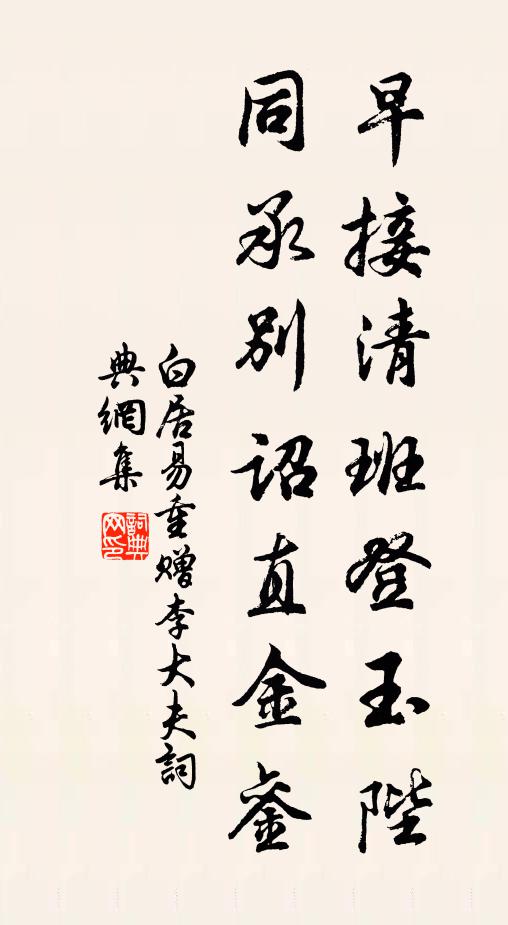 早接清班登玉陛
同承別詔直金鑾
白居易重贈李大夫詞
典網集
詞典網印